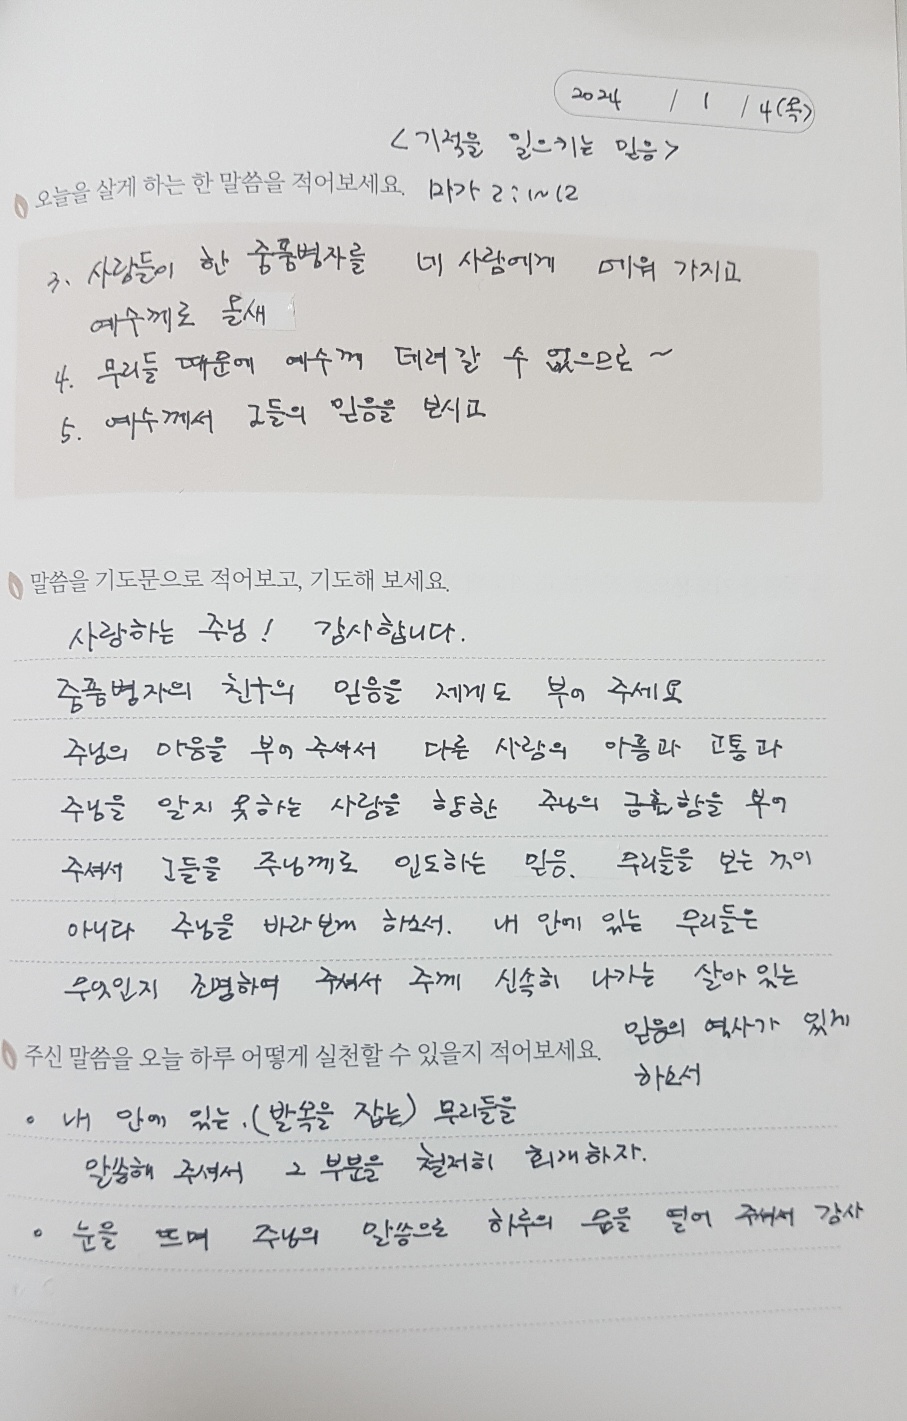 2024 / 1 / 4(목)
<기적을 일으키는 믿음>
오늘을 살게 하는 한 말씀을 적어보세요. 마가 2:1~12
3. 사람들이 한 중풍병자를 네 사람에게 메워 가지고
예수께로 올새
4. 무리들 때문에 예수께 데려갈 수 없으므로~
5. 예수께서 그들의 믿음을 보시고
말씀을 기도문으로 적어보고, 기도해 보세요.
사랑하는 주님! 감사합니다.
중풍병자의 친구의 믿음을 제게도 부어 주세요
주님의 마음을 부어 주셔서 다른 사람의 아픔과 고통과
주님을 알지 못하는 사람을 향한 주님의 긍휼함을 부어
주셔서 그들을 주님께로 인도하는 믿음. 무리들을 보는 것이
아니라 주님을 바라보게 하소서. 내 안에 있는 무리들은
무엇인지 조명하여 주셔서 주께 신속히 나가는 살아 있는
믿음의 역사가 있게
하소서
주신 말씀을 오늘 하루 어떻게 실천할 수 있을지 적어보세요.
• 내 안에 있는.(발목을 잡는) 무리들을
말씀해 주셔서 그 부분을 철저히 회개하자.
• 눈을 뜨며 주님의 말씀으로 하루의 문을 열어 주셔서 감사